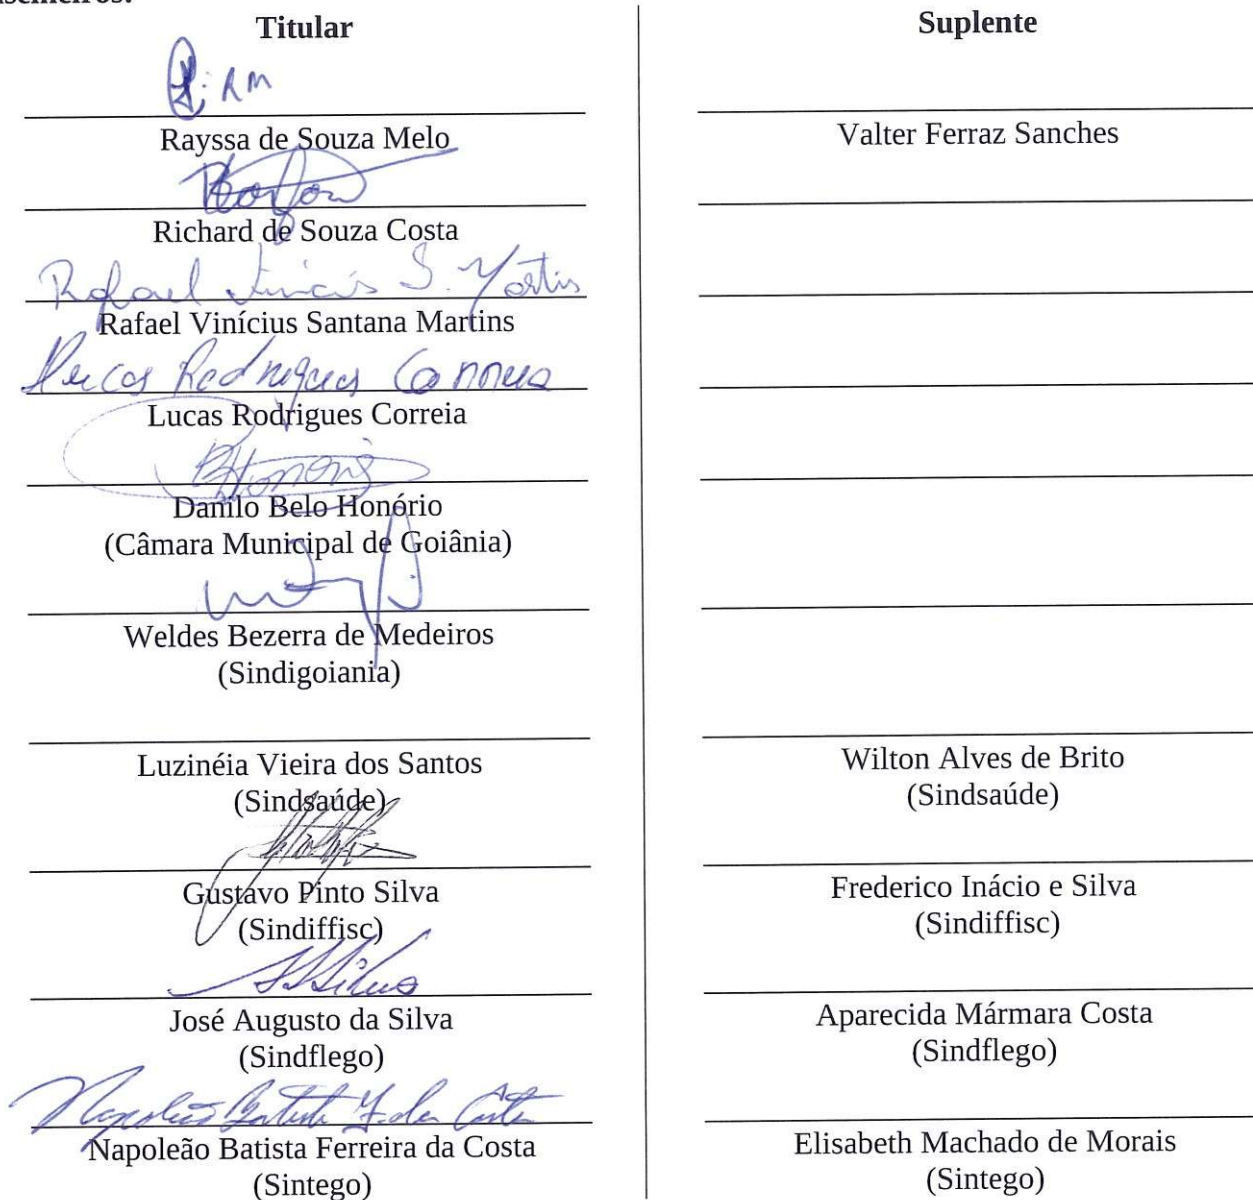 Titular
Rayssa de Souza Melo
Richard de Souza Costa
Rafael Vinícius S. Martins
Rafael Vinícius Santana Martins
Lucas Rodrigues Correia
Lucas Rodrigues Correia
BHonório
Danilo Belo Honório
(Câmara Municipal de Goiânia)
Weldes Bezerra de Medeiros
(Sindigoiania)
Luzinéia Vieira dos Santos
(Sindsaúde)
Gustavo Pinto Silva
(Sindiffisc)
José Augusto da Silva
(Sindflego)
Napoleão Batista F. da Costa
Napoleão Batista Ferreira da Costa
(Sintego)
Suplente
Valter Ferraz Sanches
Wilton Alves de Brito
(Sindsaúde)
Frederico Inácio e Silva
(Sindiffisc)
Aparecida Mármara Costa
(Sindflego)
Elisabeth Machado de Morais
(Sintego)